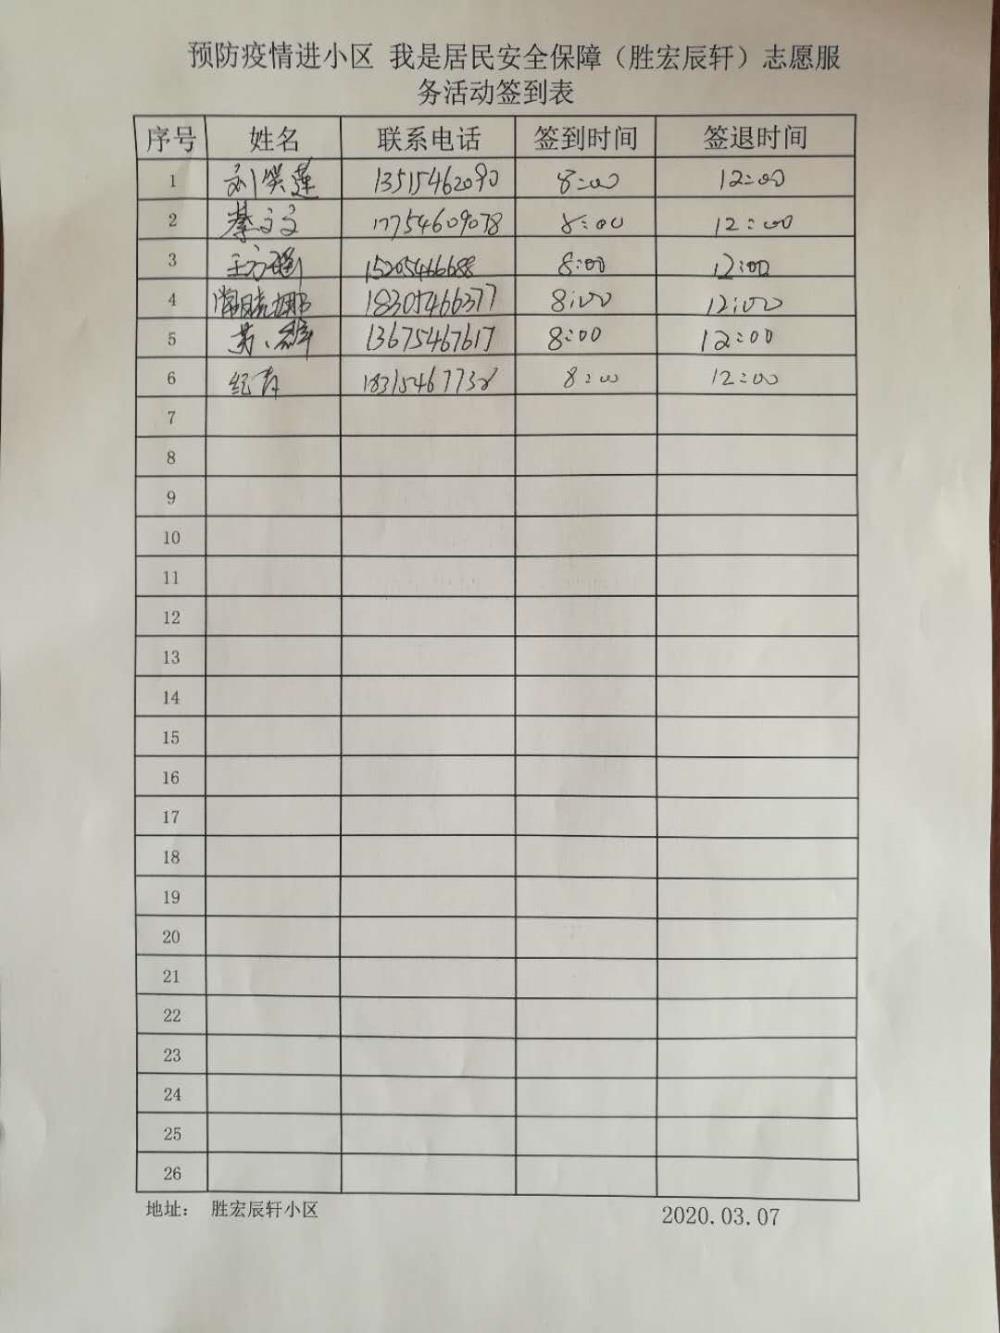 预防疫情进小区 我是居民安全保障（胜宏辰轩）志愿服
务活动签到表
序号 姓名 联系电话 签到时间 签退时间
1 刘笑莲 13515462090 8:00 12:00
2 蔡文文 17754609078 8:00 12:00
3 15205466688 8:00 12:00
4 常晓娜 18305466377 8:00 12:00
5 13675467617 8:00 12:00
6 纪青 8:00 12:00
7
8
9
10
11
12
13
14
15
16
17
18
19
20
21
22
23
24
25
26
地址： 胜宏辰轩小区 2020.03.07